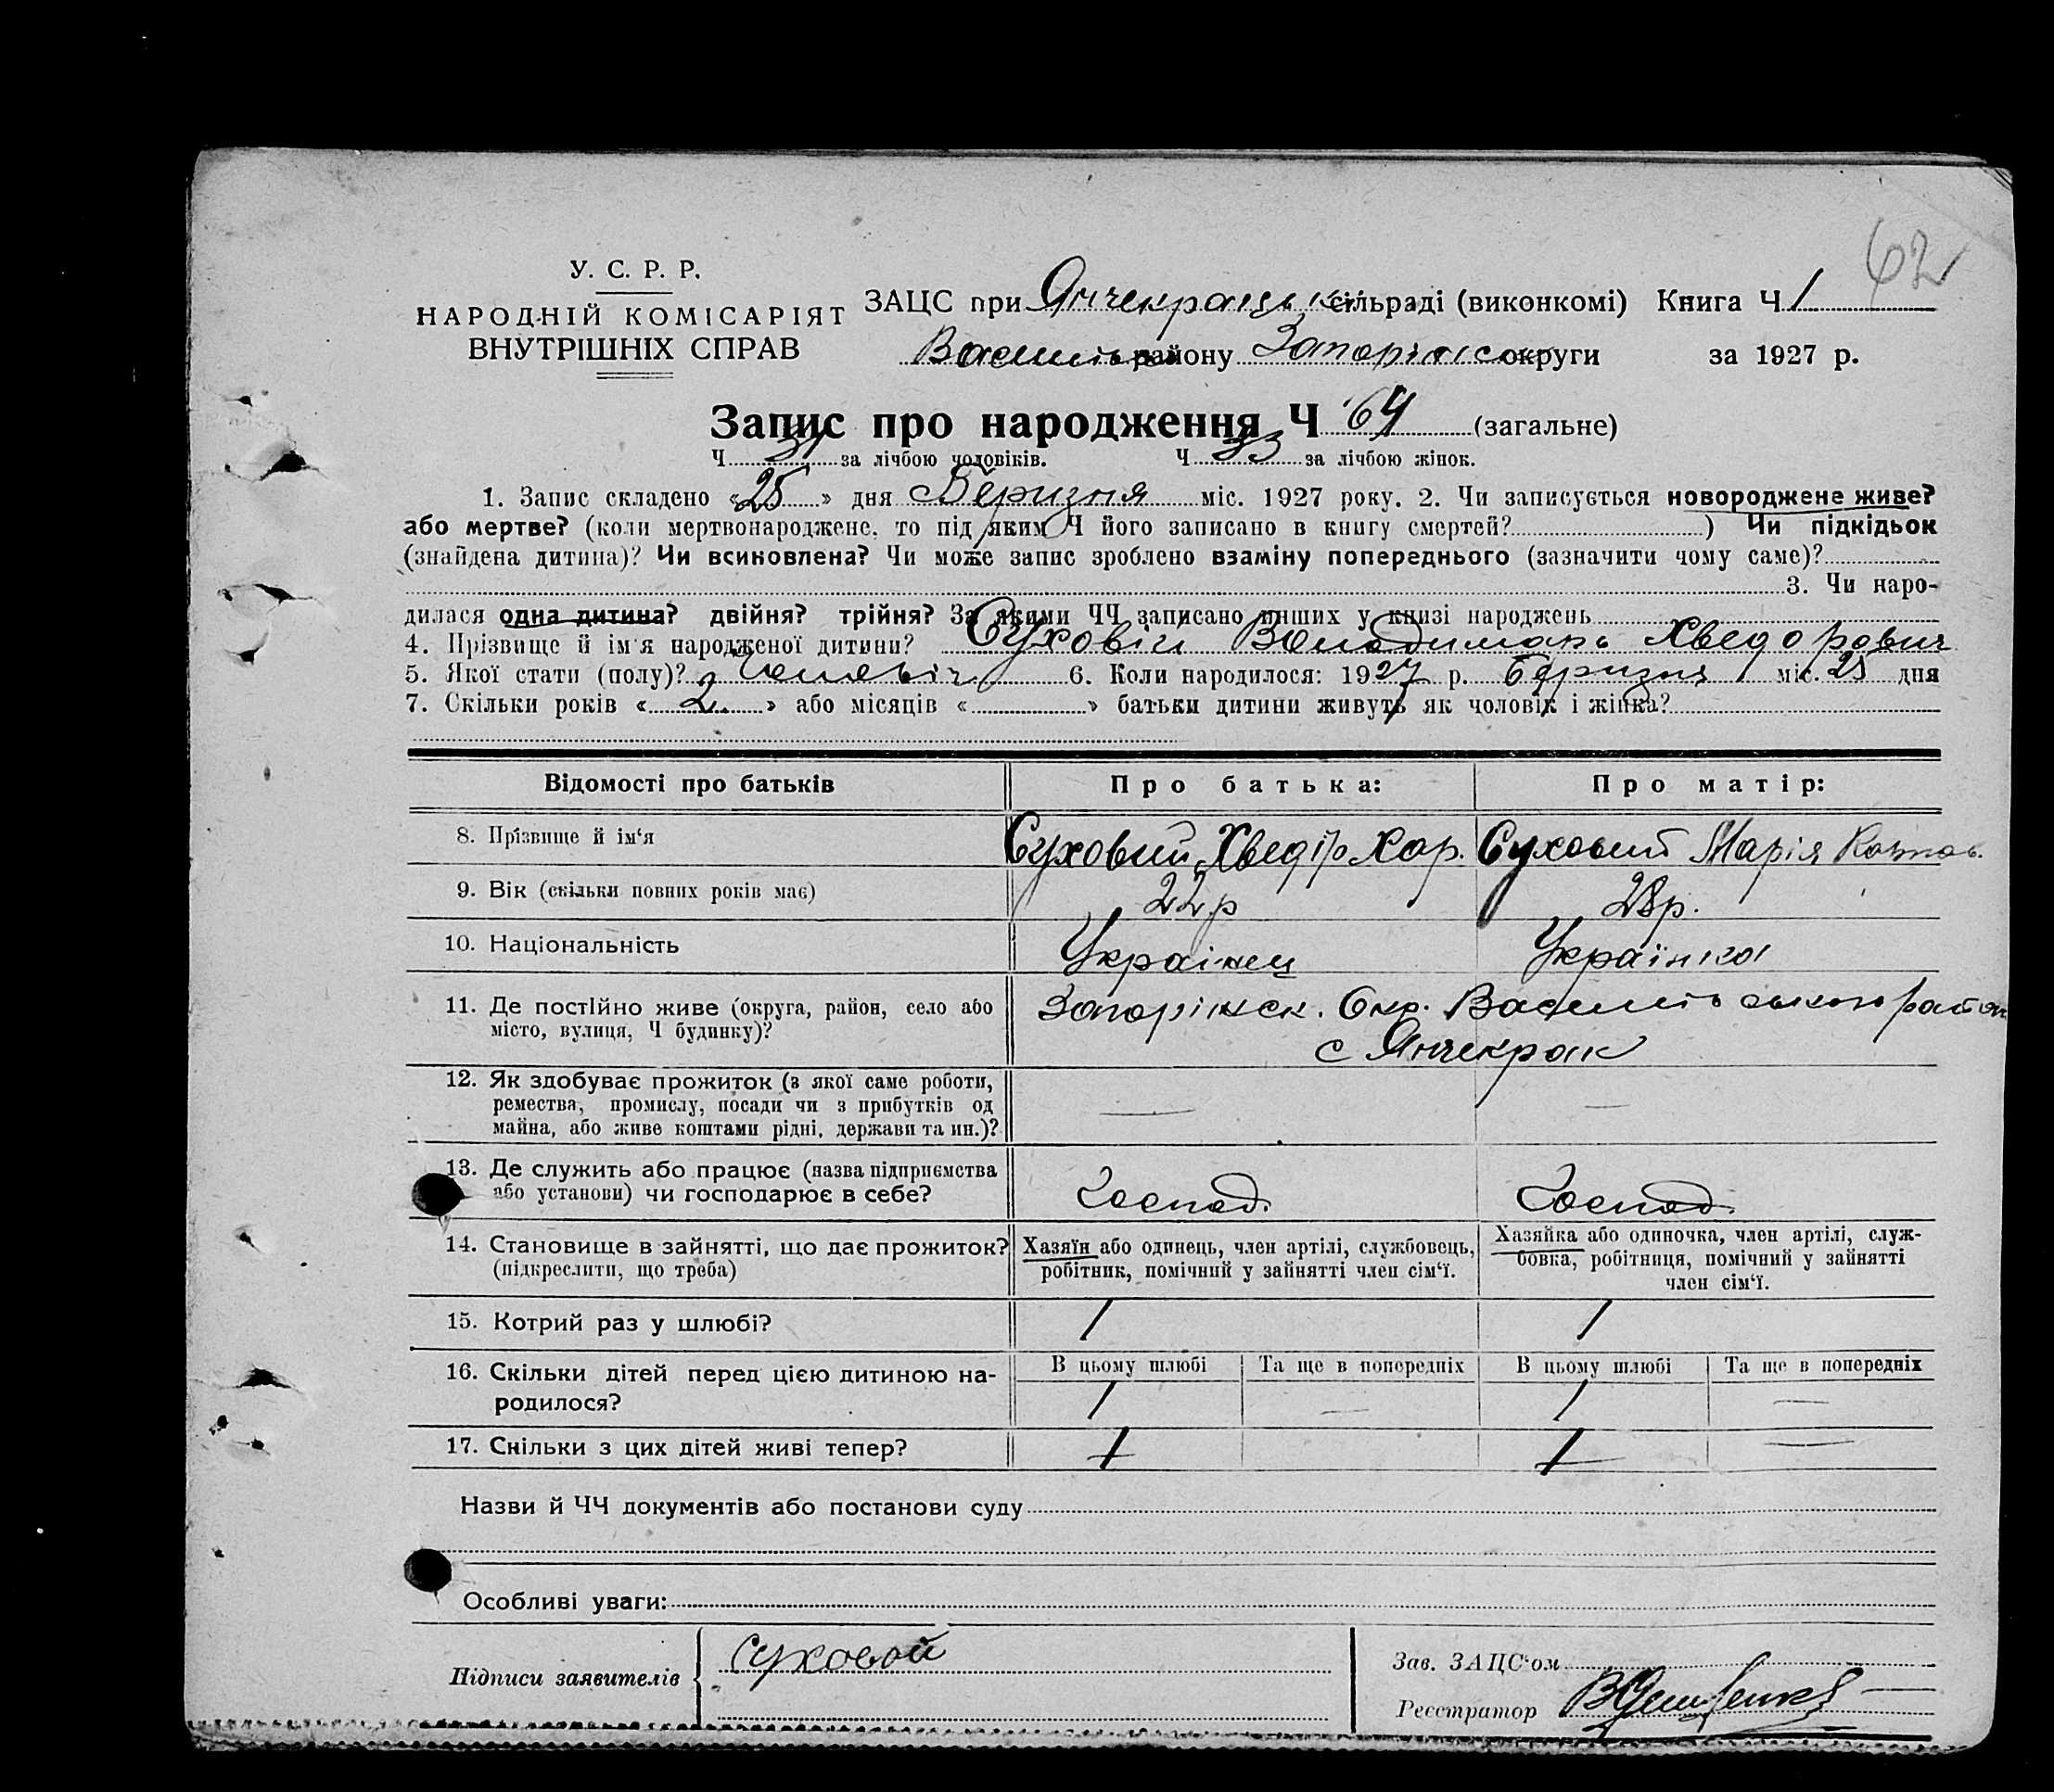 62
У. С. Р. Р.
НАРОДНІЙ КОМІСАРІЯТ
ВНУТРІШНІХ СПРАВ
ЗАЦС при Янчекрацькій сільраді (виконкомі) Книга Ч 1
Василів району Запоріжськ округи за 1927 р.
Запис про народження Ч 64 (загальне)
Ч 31 за лічбою чоловіків. Ч 33 за лічбою жінок.
1. Запис складено «25» дня Березня міс. 1927 року. 2. Чи записується новороджене живе?
або мертве? (коли мертвонароджене, то під яким Ч його записано в книгу смертей? ) Чи підкідьок
(знайдена дитина)? Чи всиновлена? Чи може запис зроблено взаміну попереднього (зазначити чому саме)?
3. Чи наро-
дилася одна дитина? двійня? трійня? За якими ЧЧ записано инших у книзі народжень
4. Прізвище й ім'я народженої дитини? Суховій Володимиръ Хведорович
5. Якої стати (полу)? Чоловіч 6. Коли народилося: 1927 р. Березня міс. 25 дня
7. Скільки років «2» або місяців « » батьки дитини живуть як чоловік і жінка?
Відомості про батьків Про батька: Про матір:
8. Прізвище й ім'я Суховий Хведір Хар. Суховий Марія
9. Вік (скільки повних років має) 22р 28р.
10. Національність Українец Українка
11. Де постійно живе (округа, район, село або
місто, вулиця, Ч будинку)? Запоріжск. Окр. Василівського район
с Янчекрак
12. Як здобуває прожиток (з якої саме роботи,
ремества, промислу, посади чи з прибутків од
майна, або живе коштами рідні, держави та ин.)? — —
13. Де служить або працює (назва підприємства
або установи) чи господарює в себе? Господ. Господ.
14. Становище в зайнятті, що дає прожиток?
(підкреслити, що треба)
Хазяїн або одинець, член артілі, службовець,
робітник, помічний у зайнятті член сім'ї.
Хазяйка або одиночка, член артілі, служ-
бовка, робітниця, помічний у зайнятті
член сім'ї.
15. Котрий раз у шлюбі? 1 1
В цьому шлюбі Та ще в попередніх В цьому шлюбі Та ще в попередніх
16. Скільки дітей перед цією дитиною на-
родилося? 1 — 1 —
17. Скільки з цих дітей живі тепер? 1 1 —
Назви й ЧЧ документів або постанови суду
Особливі уваги:
Підписи заявителів Суховой
Зав. ЗАЦС'ом
Реєстратор